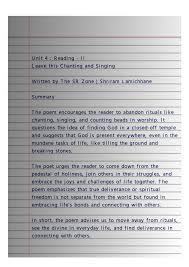 Unit 4 : Reading - II
Leave this Chanting and Singing
Written by The SR Zone | Shriram Lamichhane
Summary
The poem encourages the reader to abandon rituals like
chanting, singing, and counting beads in worship. It
questions the idea of finding God in a closed-off temple
and suggests that God is present everywhere, even in the
mundane tasks of life, like tilling the ground and
breaking stones.
The poet urges the reader to come down from the
pedestal of holiness, join others in their struggles, and
embrace the joys and challenges of life together. The
poem emphasizes that true deliverance or spiritual
freedom is not separate from the world but found in
embracing life's bonds and connections with others.
In short, the poem advises us to move away from rituals,
see the divine in everyday life, and find deliverance in
connecting with others.